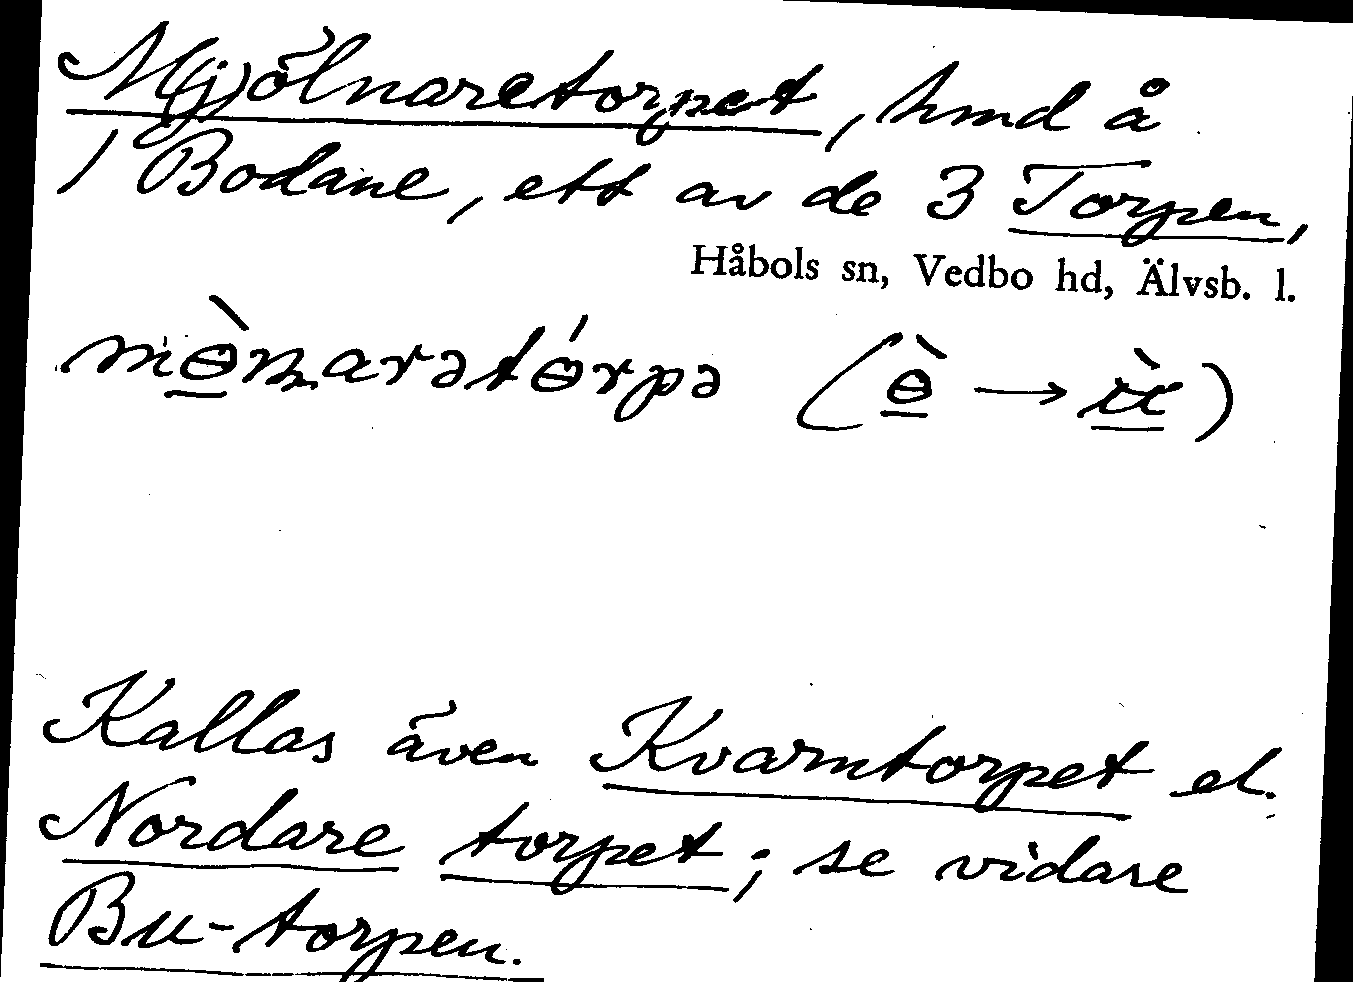 M(j)ölnaretorpet, hmd å
1 Bodane, ett av de 3 Torpen,
Håbols sn, Vedbo hd, Älvsb. l.
mɵ̀n̥arətɵ́rpə (ɵ̀ → ɪ̀ɪ)
Kallas även Kvarntorpet el.
Nordare torpet; se vidare
Bu-torpen.